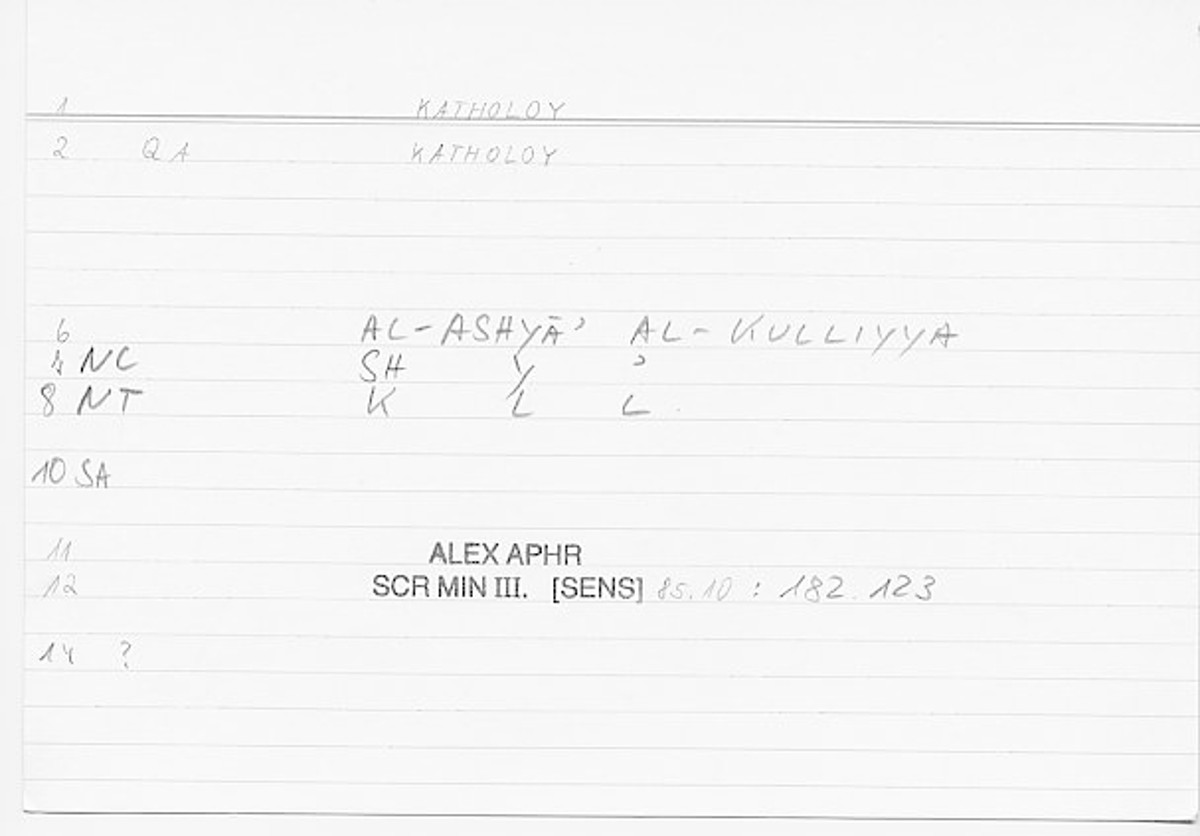 1 KATHOLOY
2 QA KATHOLOY
6 AL-ASHYĀʾ AL-KULLIYYA
7 NC SH Y ʾ
8 NT K L L
10 SA
11 ALEX APHR
12 SCR MIN III. [SENS] 85.10 : 182.123
14 ?